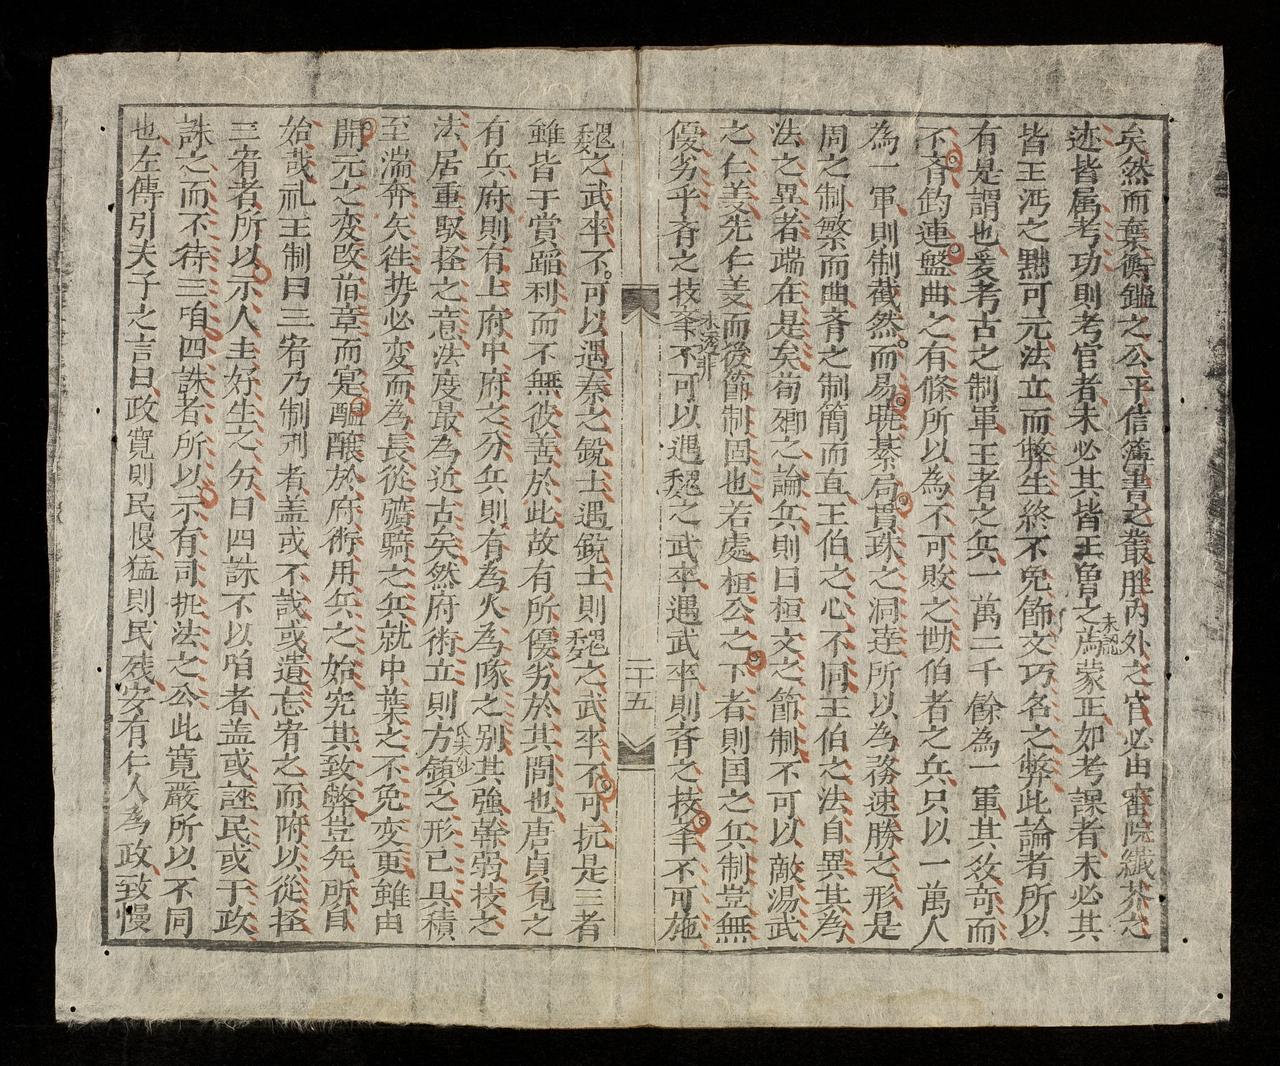 矣然而葉衡鑑之公平信簿書之叢脞内外之官必由審院纖芥之
迹皆属考功則考官者未必其皆王魯之為蒙正如考課者未必其
皆王沔之黜可元法立而弊生終不免飾文巧名之弊此論者所以
有是謂也爰考古之制軍王者之兵一萬二千餘為一軍其敎奇而
不斉鈎連盤曲之有條所以為不可敗之勣伯者之兵只以一萬人
為一軍則制截然而易暁綦局貫珠之洞達所以為務速勝之形是
周之制繁而曲斉之制簡而直王伯之心不同王伯之法自異其為
法之異者端在是矣荀卿之論兵則曰桓文之節制不可以敵湯武
之仁義先仁義而後節制固也若處桓公之下者則国之兵制豈無
優劣乎斉之技不可以遇魏之武卒遇武卒則斉之技不可施
二十五
魏之武卒不可以遇秦之鋭士遇鋭士則魏之武卒不可抗是三者
雖皆于賞蹈利而不無彼善於此故有所優劣於其間也唐貞覌之
有兵府則有上府中府之分兵則有為火為隊之別其強幹弱技之
法居重馭軽之意法度最為近古矣然府術立則方鎮之形已具積
至湍奔矢徃势必变而為長從彍騎之兵就中葉之不免变更雖由
開元之变改旧章而寔醖釀於府術用兵之始究其致弊豈无所自
始哉礼王制曰三宥乃制刑者盖或不哉或遺忘宥之而附以從軽
三宥者所以示人主好生之夯曰四誅不以咱者盖或誣民或于政
誅之而不待三咱四誅者所以示有司扼法之公此寛嚴所以不同
也左傳引夫子之言曰政寛則民慢猛則民残安有仁人為政致慢